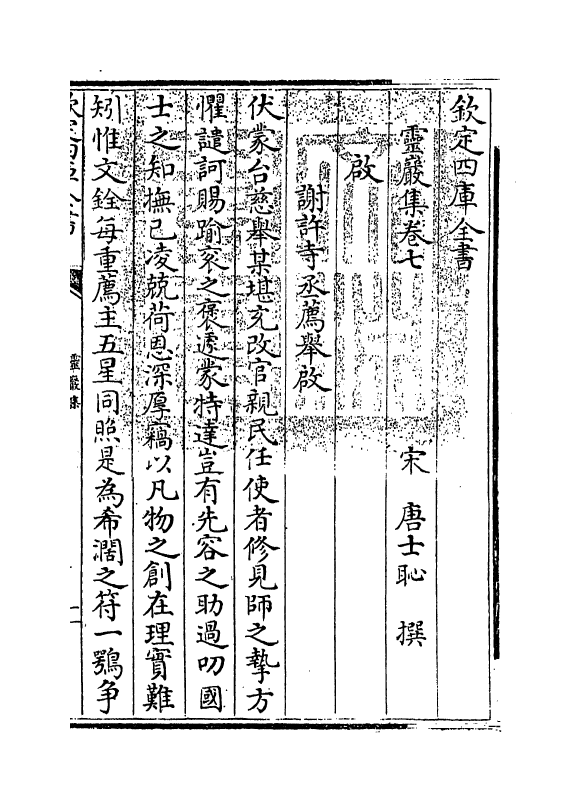 欽定四庫全書
靈巖集卷七
宋 唐士恥 撰
啟
謝許寺丞薦舉啟
伏蒙台慈舉某堪充改官親民任使者修見師之摯方
懼譴訶賜踰衮之褒遽蒙特達豈有先容之助過叨國
士之知撫己凌兢荷恩深厚竊以凡物之創在理實難
矧惟文銓每重薦主五星同照是為希濶之符一鶚争
欽定四庫全書
靈巖集
一